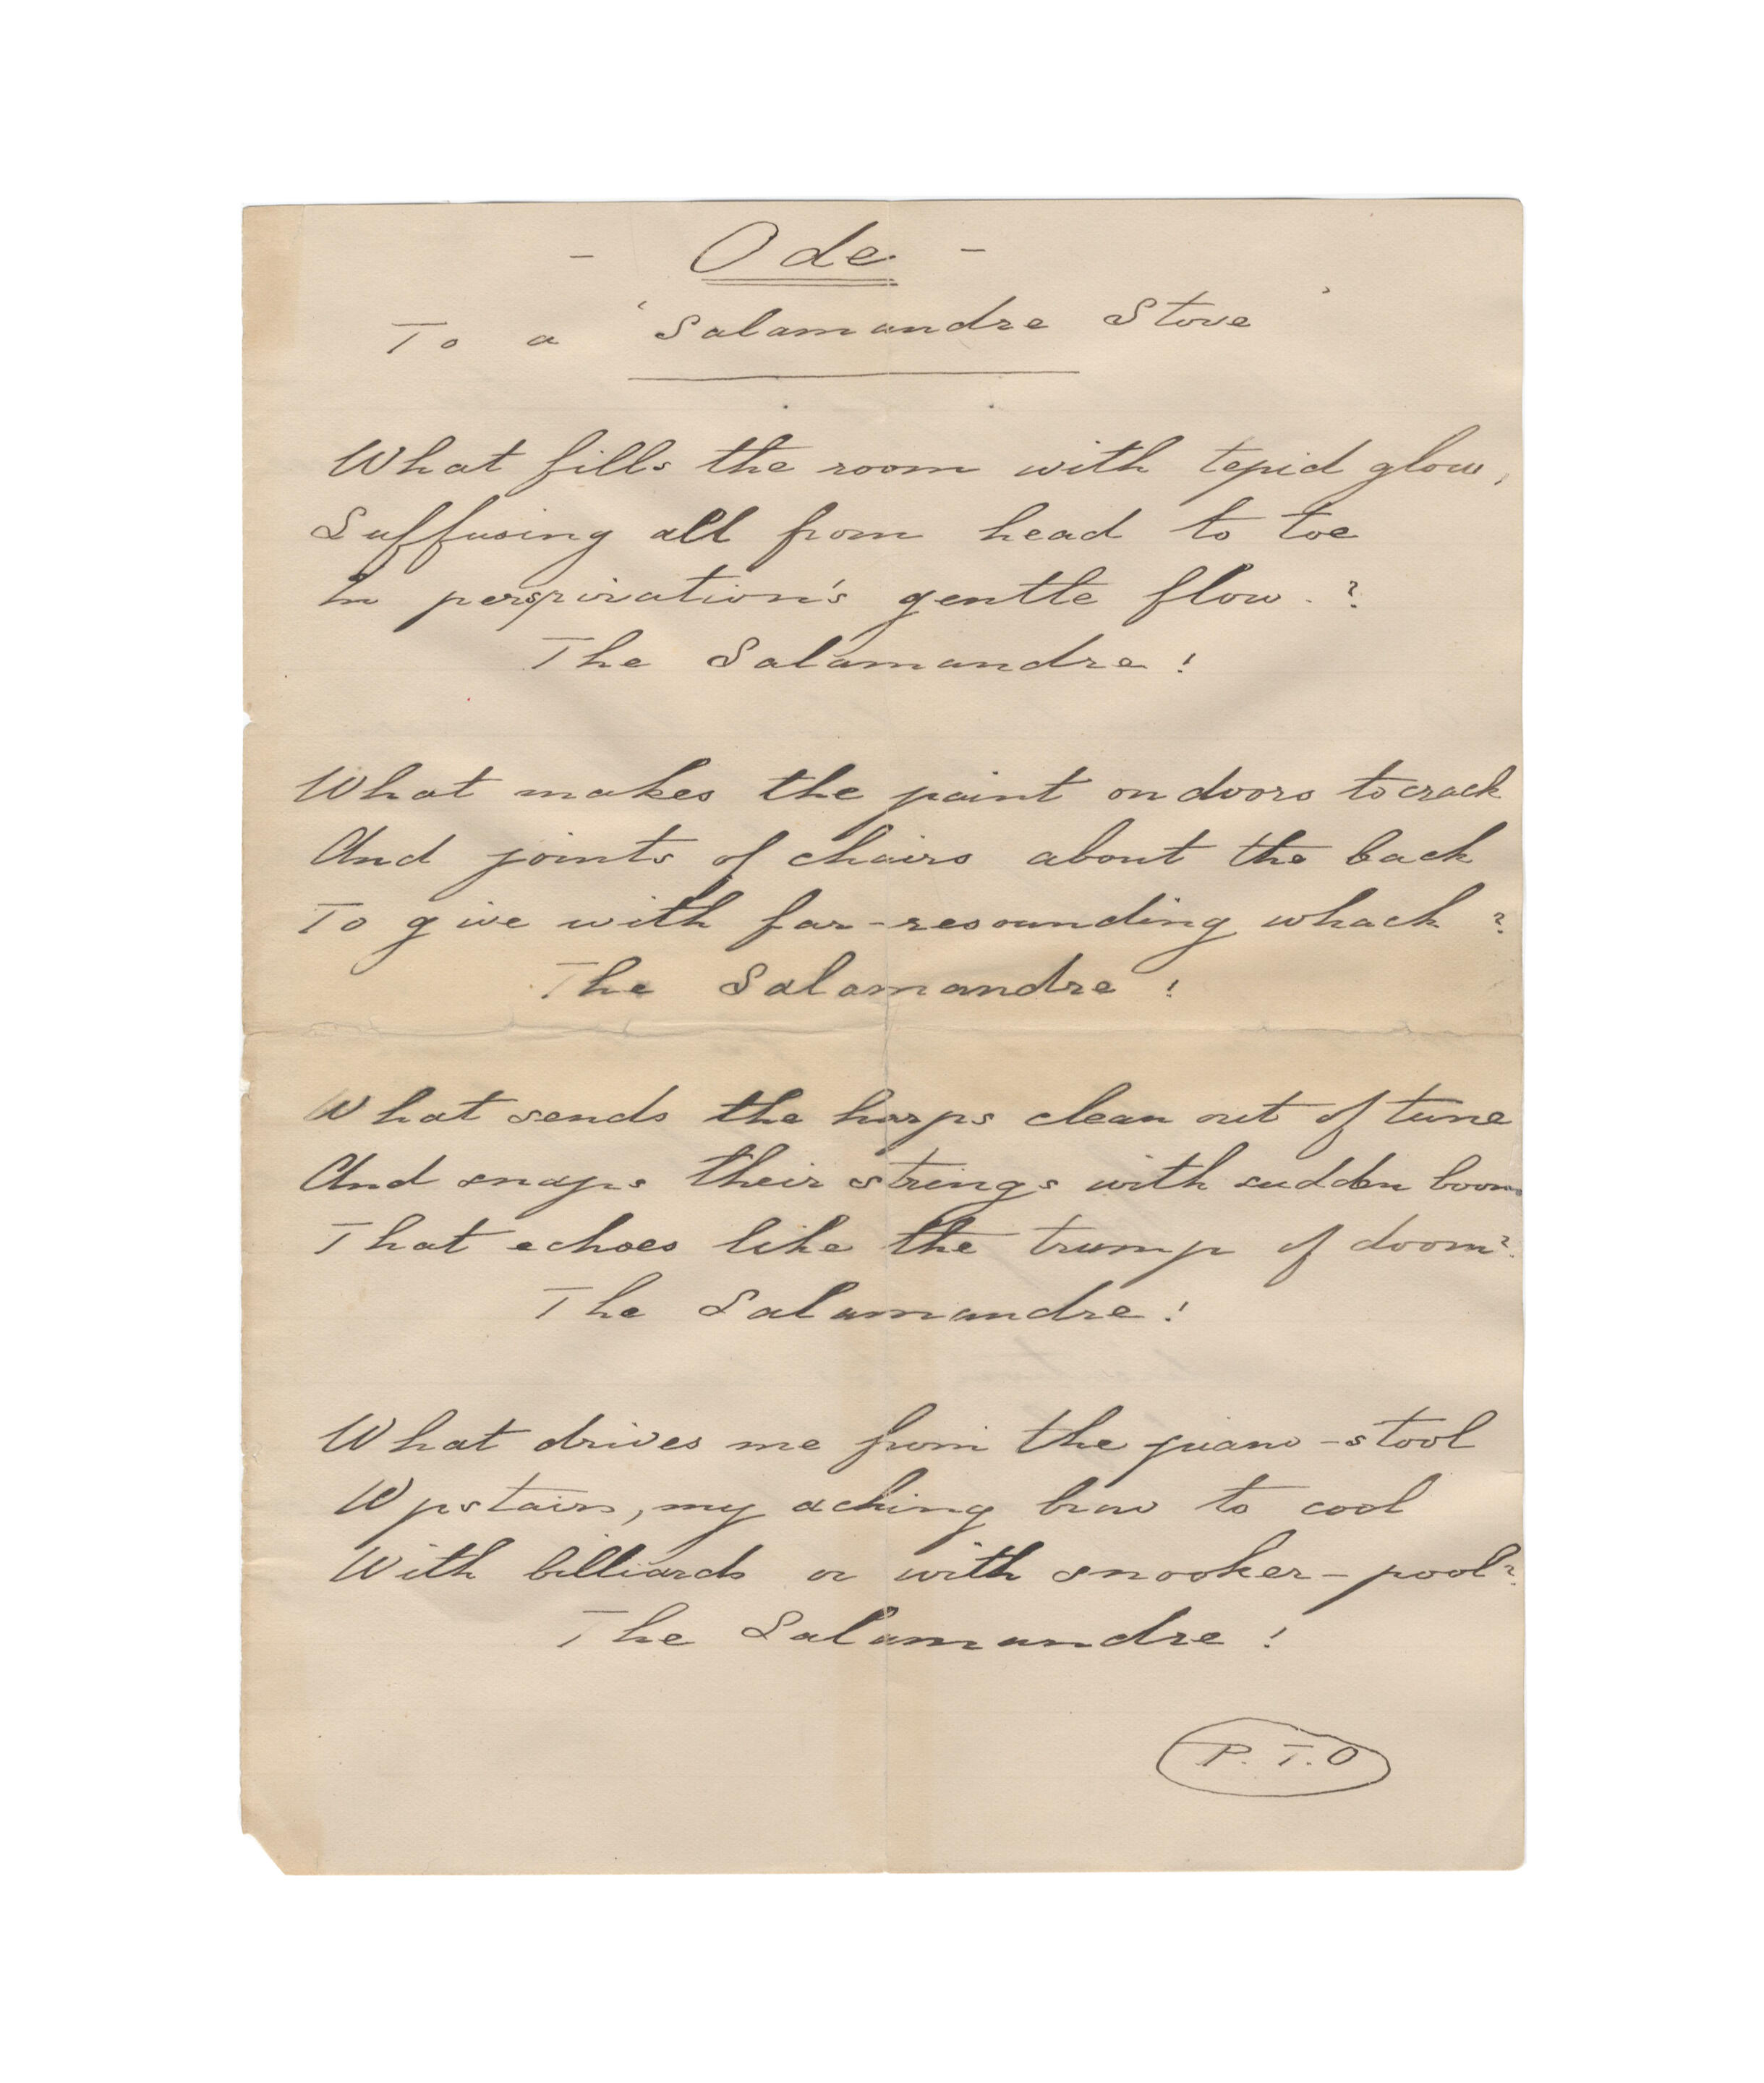 - Ode -
To a 'Salamandre Stove'
What fills the room with tepid glow,
Suffusing all from head to toe
In perspiration's gentle flow.?
The Salamandre!
What makes the paint on doors to crack
And joints of chairs about the back
To give with far-resounding whack?
The Salamandre!
What sends the harps clean out of tune
And snaps their strings with sudden boom
That echoes like the trump of doom?
The Salamandre!
What drives me from the piano-stool
Upstairs, my aching brow to cool
With billiards or with snooker-pool?
The Salamandre!
P.T.O